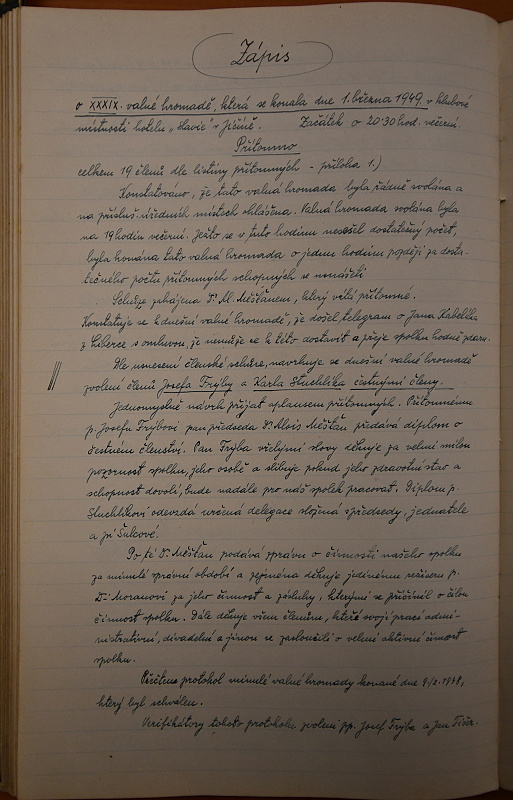 Zápis
o XXXIX. valné hromadě, která se konala dne 1. března 1949. v klubové
místnosti hotelu „Slavie" v Jičíně. Začátek o 20·30 hod. večerní.
Přítomno
celkem 19 členů dle listiny přítomných - příloha 1.)
Konstatováno, že tato valná hromada byla řádně svolána a
na přísluš. úředních místech ohlášena. Valná hromada svolána byla
na 19 hodin večerní. Ježto se v tuto hodinu nesešel dostatečný počet,
byla konána tato valná hromada o jednu hodinu později za dosta-
tečného počtu přítomných schopných se usnášeti
Schůze zahájena Dr. Al. Měšťanem, který vítá přítomné.
Konstatuje se k dnešní valné hromadě, že došel telegram o Jana Kabelíka
z Liberce s omluvou, že nemůže se k této dostavit a přeje spolku hodně zdaru.
Dle usnesení členské schůze, navrhuje se dnešní valné hromadě
zvolení členů Josefa Frýby a Karla Stuchlíka čestnými členy.
Jednomyslně návrh přijat aplausem přítomných. Přítomnému
p. Josefu Frýbovi pan předseda Dr. Alois Měšťan předává diplom o
čestném členství. Pan Frýba vřelými slovy děkuje za velmi milou
pozornost spolku, jeho osobě a slibuje pokud jeho zdravotní stav a
schopnost dovolí, bude nadále pro náš spolek pracovat. Diplom p.
Stuchlíkovi odevzdá určená delegace složená z předsedy, jednatele
a pí Šulcové.
Po té Dr. Měšťan podává zprávu o činnosti našeho spolku
za minulé správní období a zejména děkuje jedinému režiseru p.
Dr. Moranovi za jeho činnost a zásluhy, kterými se přičinil o čilou
činnost spolku. Dále děkuje všem členům, kteří svojí prací admi-
nistrativní, divadelní a jinou se zasloužili o velmi aktivní činnost
spolku.
Přečten protokol minulé valné hromady konané dne 9/2. 1948,
který byl schválen.
Verifikátory tohoto protokolu zvoleni pp. Josef Frýba a Jan